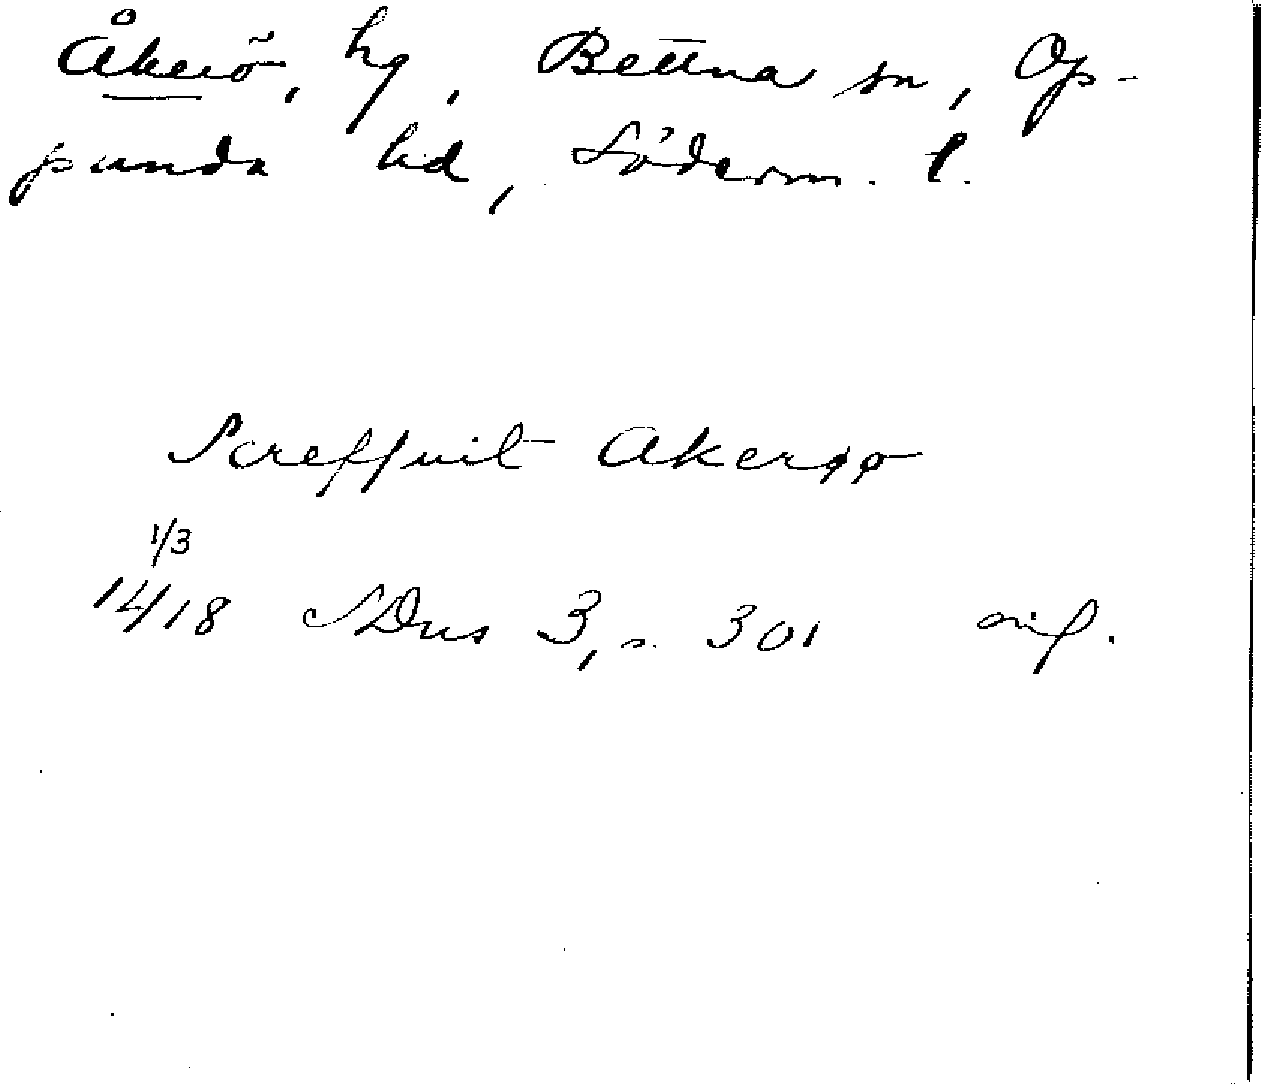 Åkerö, hg, Bettna sn, Op-
punda hd, Söderm. l.
Screffuit Akerøø
1/3
1418 SDns 3, s. 301 sig.